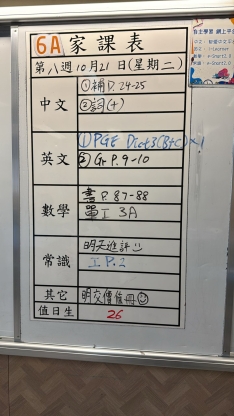 6A 家課表
第八週10月21日(星期二)
中文
①補P.24-25
②詞(十)
英文
①PGE Dict3(B+C)×1
② Gr P.9-10
數學
書 P.87-88
單工 3A
常識
明天進評
工 P.2
其它
明交價值冊
值日生
26
自主學習 網上平